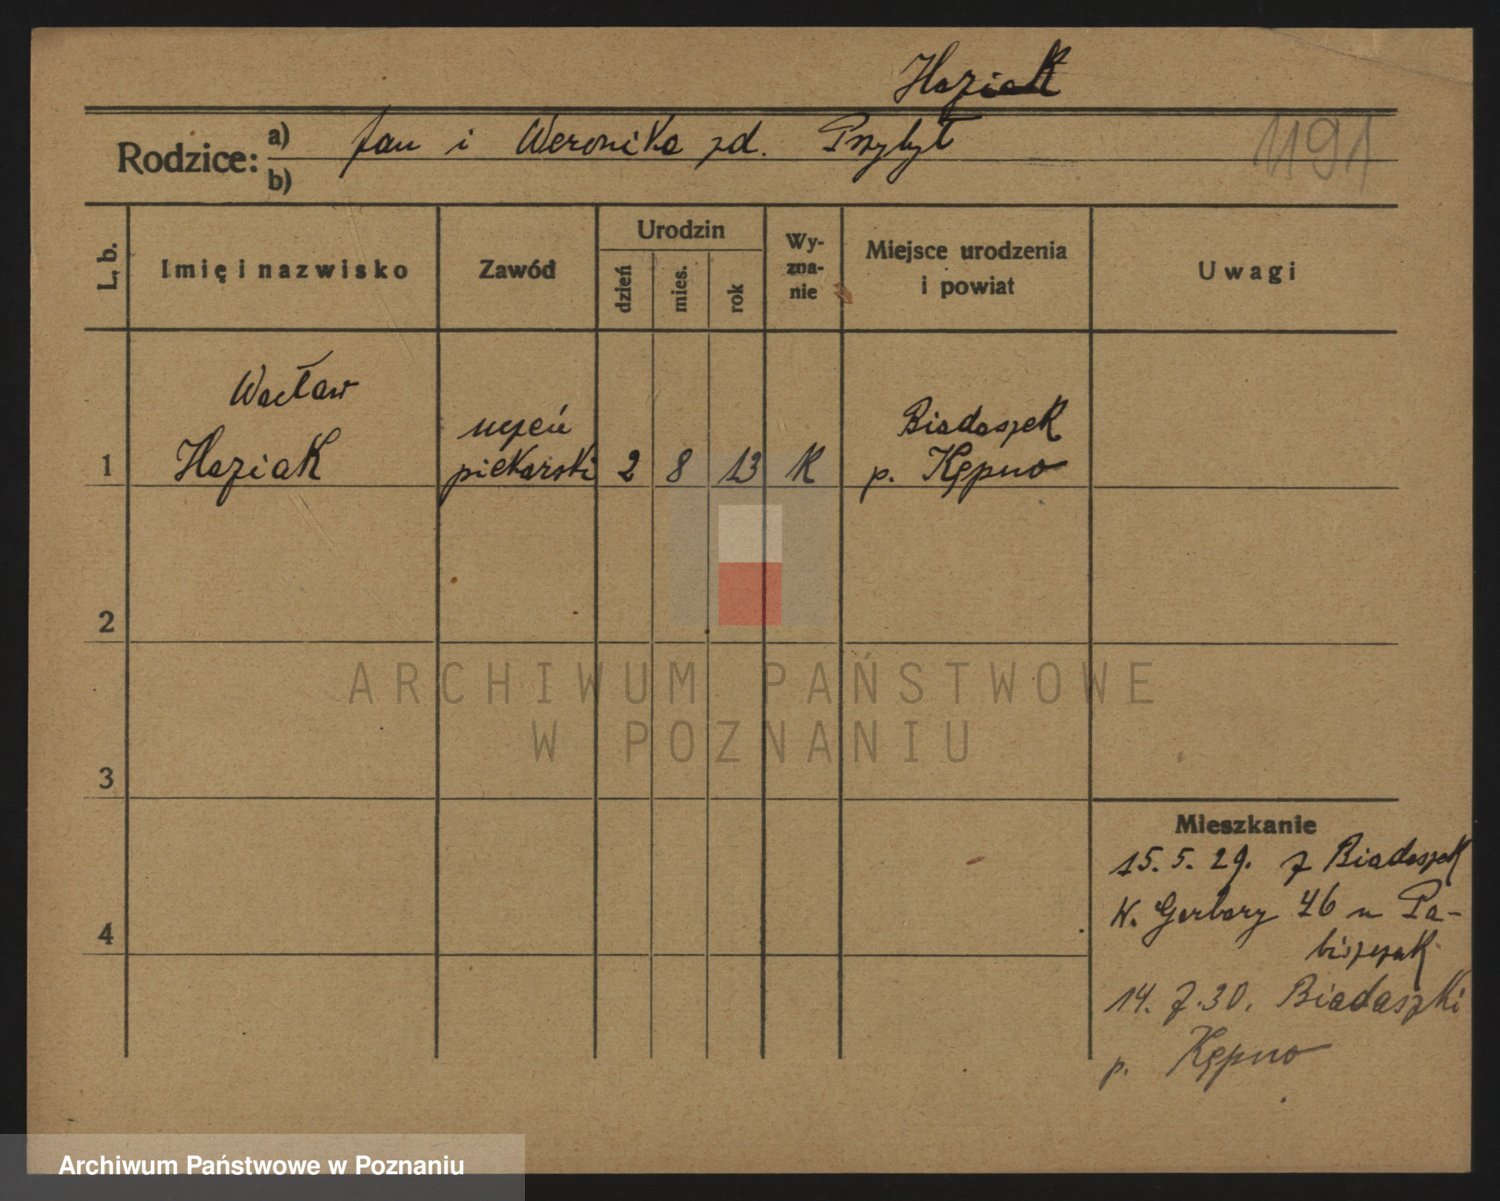 Haziak
Rodzice: a) Jan i Weronika zd. Przybył
b)
1191
L. b.
Imię i nazwisko
Zawód
Urodzin
dzień
mies.
rok
Wy-
zna-
nie
Miejsce urodzenia
i powiat
Uwagi
Wacław
1 Haziak
uczeń
piekarski
2 8 13 K
Biadaszek
p. Kępno
2
ARCHIWUM PAŃSTWOWE
W POZNANIU
3
4
Mieszkanie
15.5.29. z Biadaszek
W. Garbary 46 u Pa-
biszczak
14.7.30. Biadaszki
p. Kępno
Archiwum Państwowe w Poznaniu